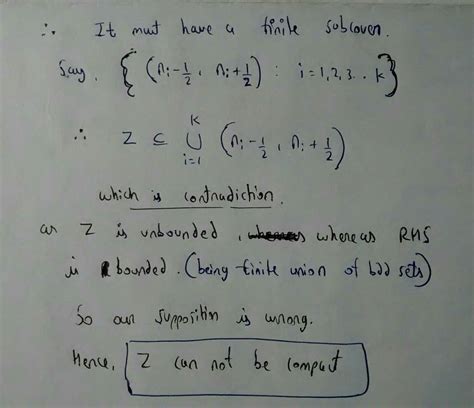 ∴ It must have a finite subcover.
Say, { (n_i - 1/2, n_i + 1/2) : i = 1, 2, 3 .. k }
∴ Z ⊆ ⋃_{i=1}^{K} (n_i - 1/2, n_i + 1/2)
which is contradiction.
as Z is unbounded, whereas RHS
is bounded. (being finite union of bdd sets)
So our supposition is wrong.
Hence, Z can not be compact